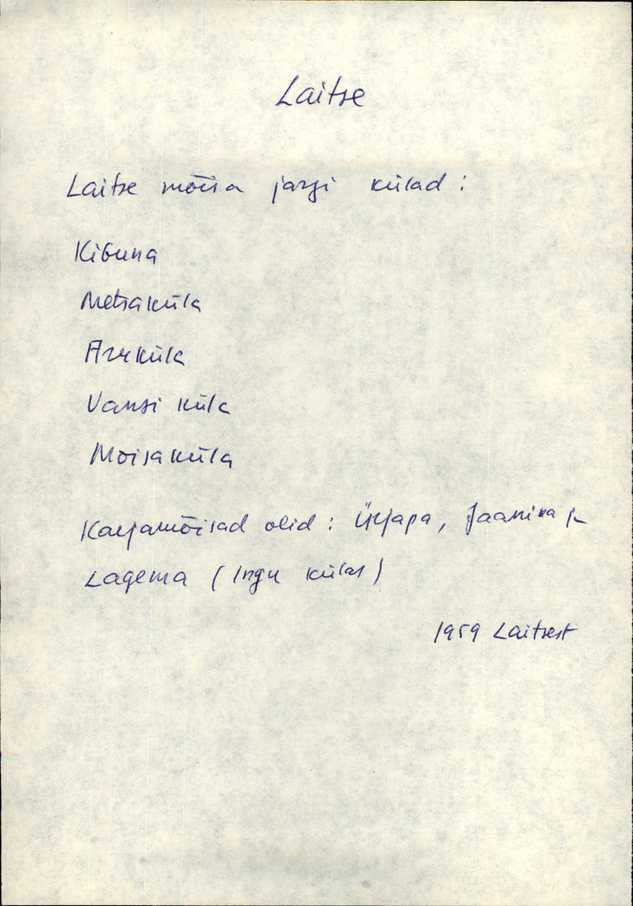 Laitse
Laitse mõisa järgi külad:
Kibuna
Metsaküla
Aruküla
Vansi küla
Mõisaküla
Karjamõisad olid: Ürjapa, Jaanika ja
Lagema (Ingu külas)
1959 Laitsest